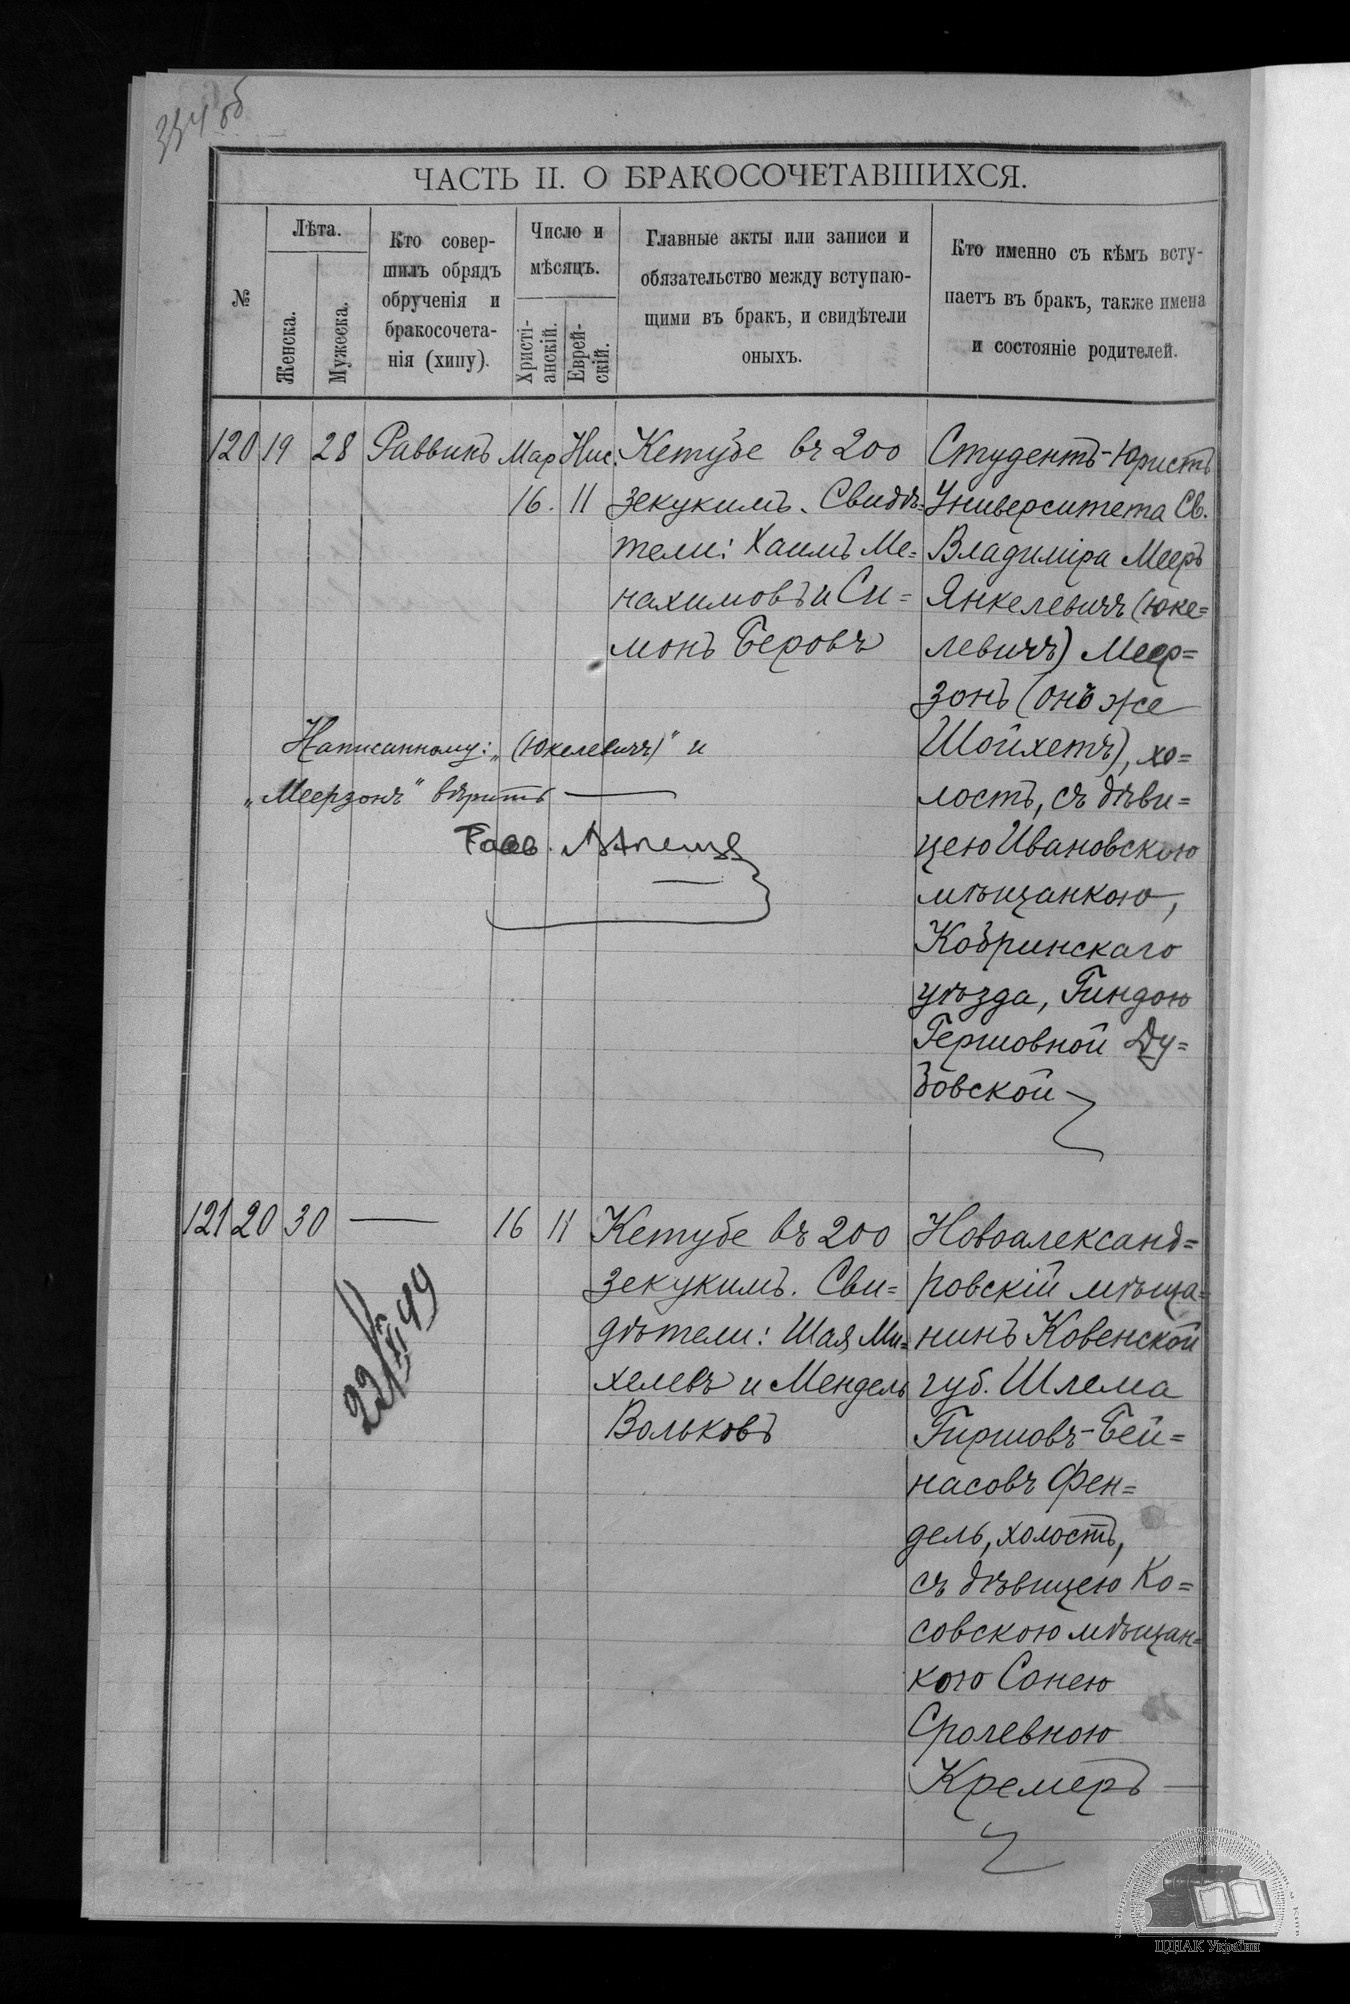 334 об
ЧАСТЬ II. О БРАКОСОЧЕТАВШИХСЯ.
№
Лѣта.
Женска.
Мужеска.
Кто совер-
шилъ обрядъ
обрученія и
бракосочета-
нія (хипу).
Число и
мѣсяцъ.
Христі-
анскій.
Еврей-
скій.
Главные акты или записи и
обязательство между вступаю-
щими въ бракъ, и свидѣтели
оныхъ.
Кто именно съ кѣмъ всту-
паетъ въ бракъ, также имена
и состояніе родителей.
120 19 28 Раввинъ Мар Нис.
16. 11
Кетубе въ 200
зекукимъ. Свидѣ=
тели: Хаимъ Ме=
нахимовъ и Си=
монъ Беровъ
Студентъ-Юристъ
Университета Св.
Владиміра Мееръ
Янкелевичъ (Юке=
левичъ) Меер=
зонъ (онъ же
Шойхетъ), хо=
лостъ, съ дѣви=
цею Ивановскою
мѣщанкою,
Кобринскаго
уѣзда, Гиндою
Гершовной Ду=
бовской
Написанному: „(Юкелевичъ)" и
„Меерзонъ" вѣрить
Равв.
121 20 30 — 16 11
Кетубе въ 200
зекукимъ. Сви=
дѣтели: Шая Ми=
хелевъ и Мендель
Вольковъ
Новоалександ=
ровскій мѣща=
нинъ Ковенской
губ. Шлема
Гиршовъ-Бей=
насовъ Фен=
дель, холостъ,
съ дѣвицею Ко=
совскою мѣщан=
кою Сонею
Сролевною
Кремеръ
ЦДІАК України